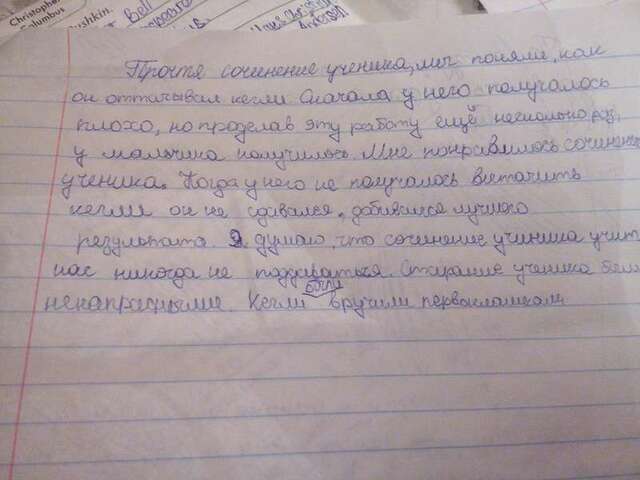 Christopher
Columbus
Pushkin.
Bell
Andersen
Прочтя сочинение ученика, мы поняли, как
он оттачывал кегли. Сначала у него получалось
плохо, но проделав эту работу ещё несколько раз,
у мальчика получилось. Мне понравилось сочинение
ученика. Когда у него не получалось выточить
кегли он не сдавался, добивался лучшего
результата. Я думаю, что сочинение ученика учит
нас никогда не поддаваться. Старание ученика были
ненапрасными. Кегли были вручили первоклассникам